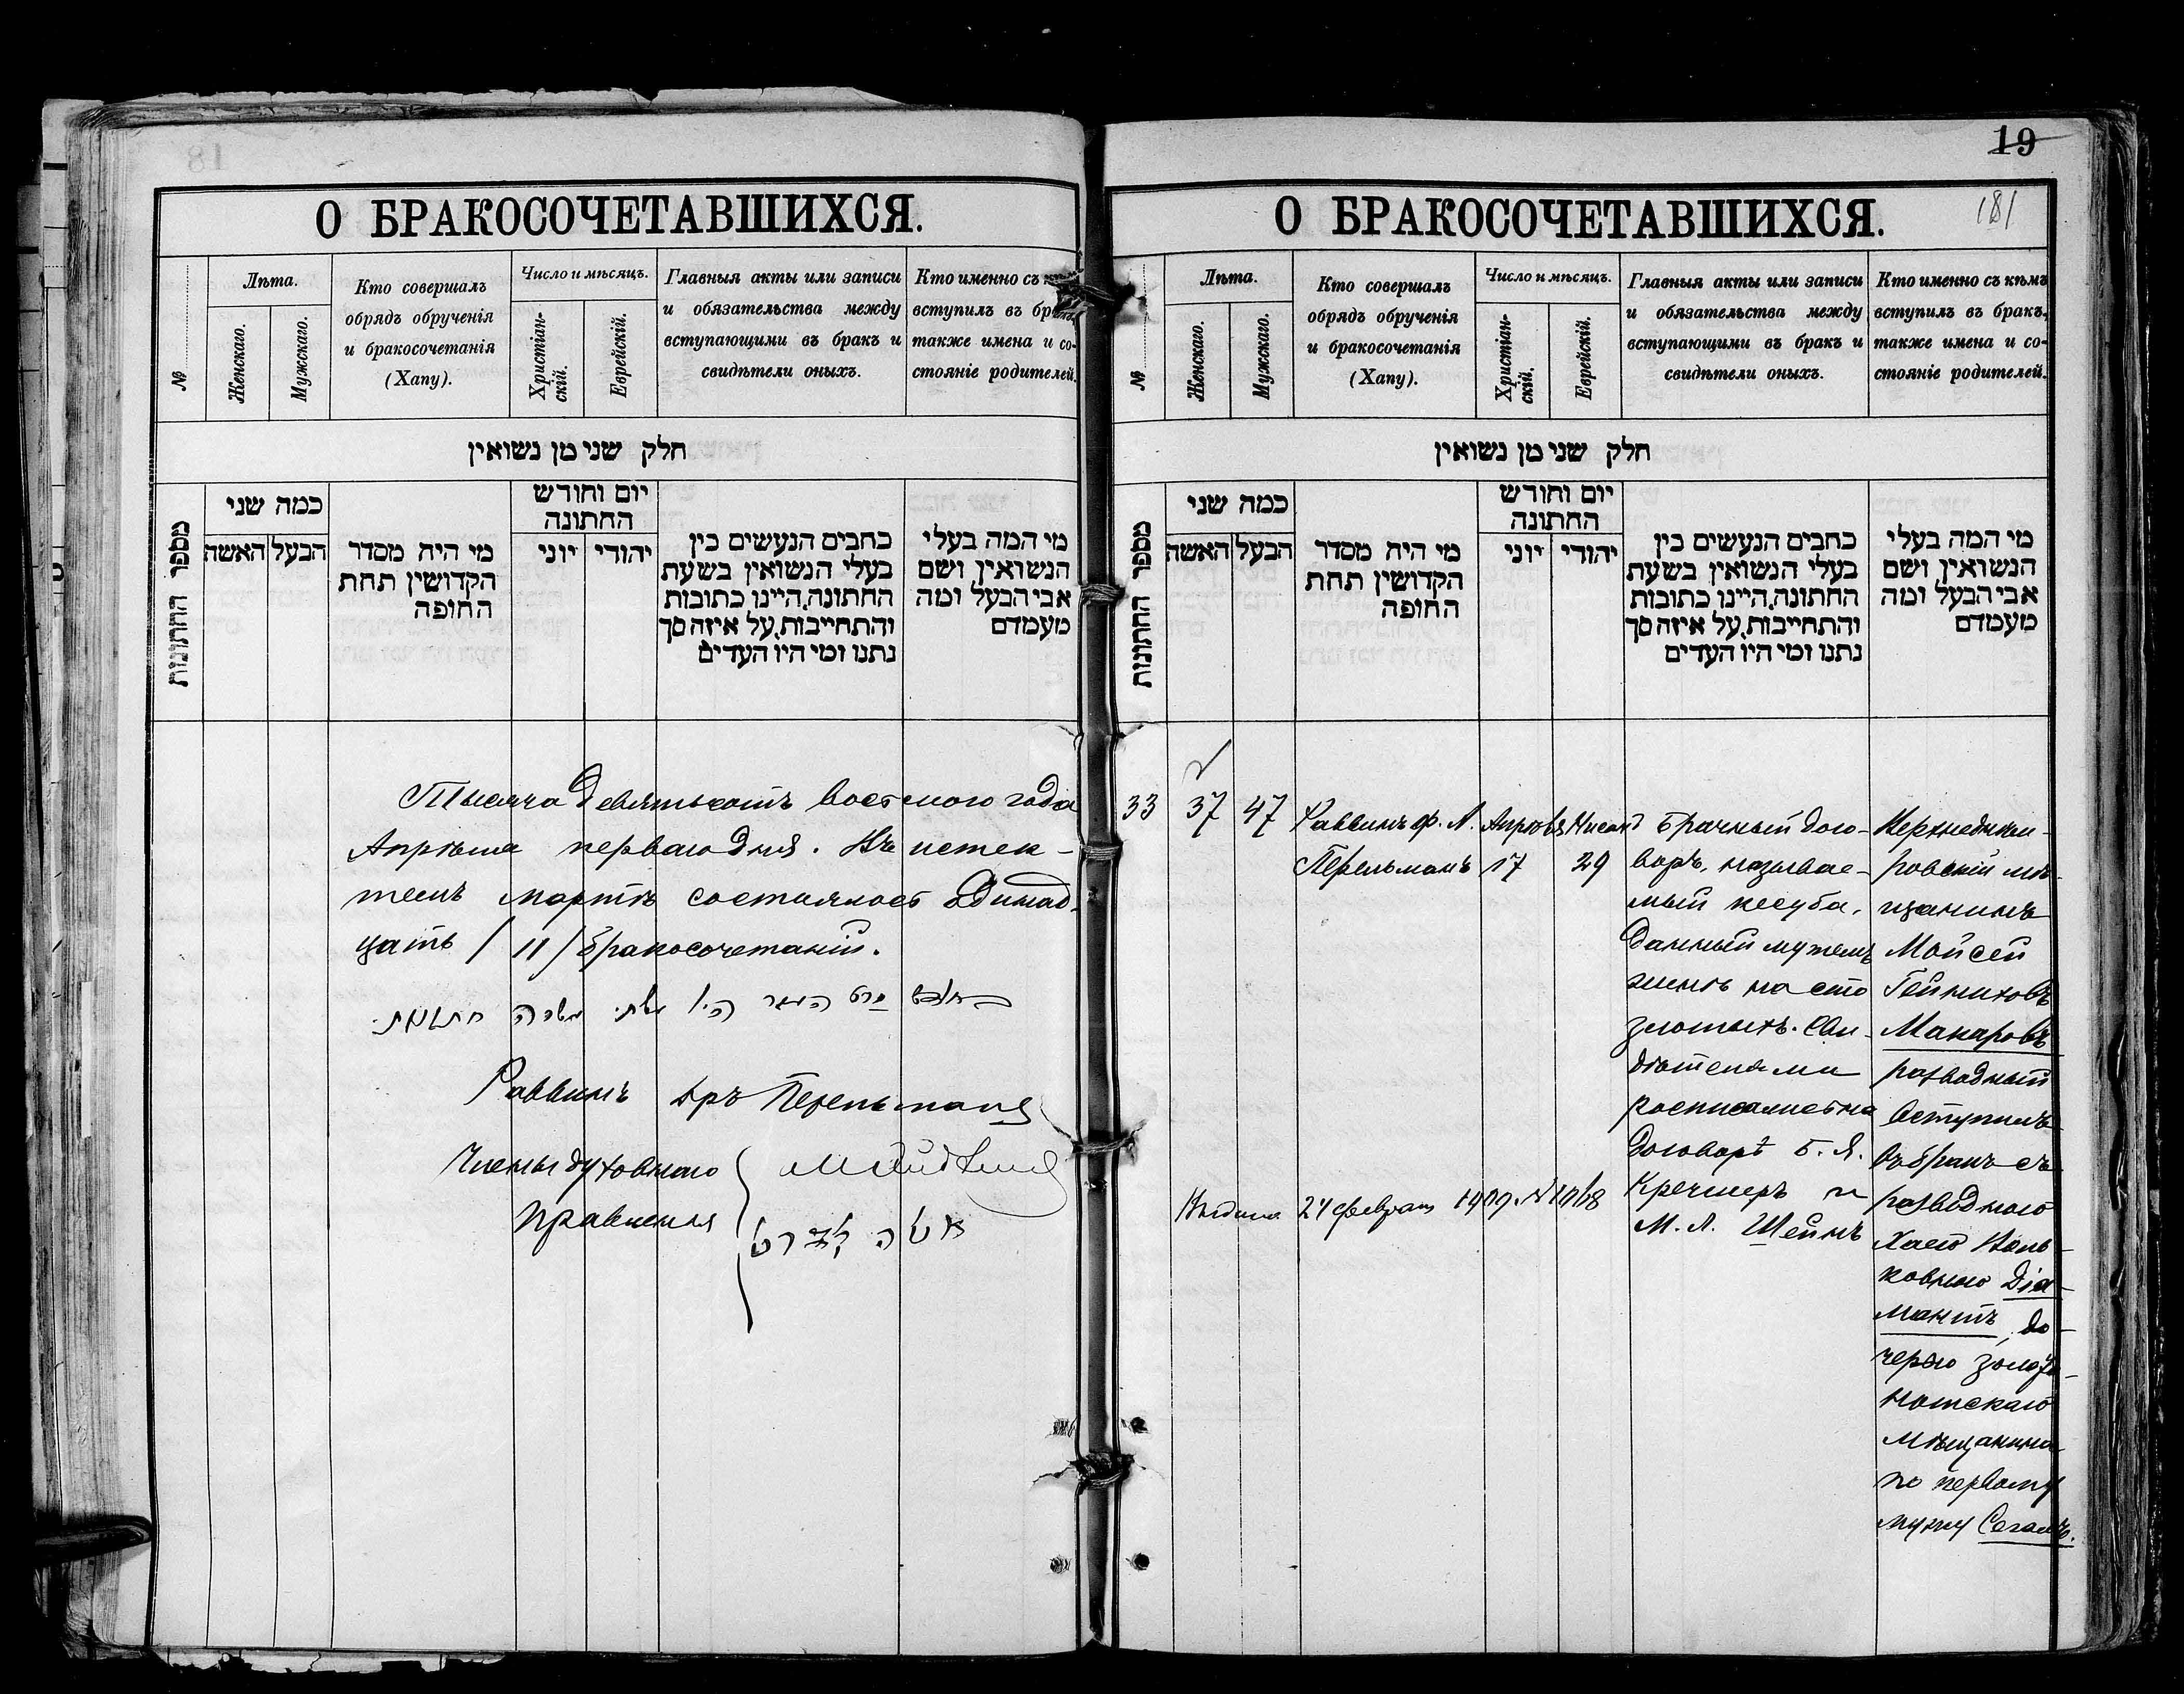 О БРАКОСОЧЕТАВШИХСЯ.
№
Лѣта.
Женскаго.
Мужскаго.
Кто совершалъ
обрядъ обрученія
и бракосочетанія
(Хапу).
Число и мѣсяцъ.
Христіан-
скій.
Еврейскій.
Главныя акты или записи
и обязательства между
вступающими въ бракъ и
свидѣтели оныхъ.
Кто именно съ
вступилъ въ
также имена и со-
стояніе родителей.
חלק שני מן נשואין
מספר החתונות
כמה שני
האשה
הבעל
מי היה מסדר
הקדושין תחת
החופה
יום וחודש
החתונה
יוני
יהודי
כתבים הנעשים בין
בעלי הנשואין בשעת
החתונה, היינו כתובות
והתחייבות, על איזה סך
נתנו ומי היו העדים
מי המה בעלי
הנשואין ושם
אבי הבעל ומה
מעמדם
Тысяча девятьсотъ восьмого года
Апрѣля перваго дня. Въ истек-
шемъ мартѣ состоялось одинад-
цать /11/ бракосочетаній.
Раввинъ д-ръ Перельманъ
Члены духовнаго
Правленія
19
181
О БРАКОСОЧЕТАВШИХСЯ.
№
Лѣта.
Женскаго.
Мужскаго.
Кто совершалъ
обрядъ обрученія
и бракосочетанія
(Хапу).
Число и мѣсяцъ.
Христіан-
скій.
Еврейскій.
Главныя акты или записи
и обязательства между
вступающими въ бракъ и
свидѣтели оныхъ.
Кто именно съ кѣмъ
вступилъ въ бракъ,
также имена и со-
стояніе родителей.
חלק שני מן נשואין
מספר החתונות
כמה שני
האשה
הבעל
מי היה מסדר
הקדושין תחת
החופה
יום וחודש
החתונה
יוני
יהודי
כתבים הנעשים בין
בעלי הנשואין בשעת
החתונה, היינו כתובות
והתחייבות, על איזה סך
נתנו ומי היו העדים
מי המה בעלי
הנשואין ושם
אבי הבעל ומה
מעמדם
33
37
47
Раввинъ Ф. Л.
Перельманъ
Апрѣля
17
Нисанъ
29
Брачный дого-
воръ, называе-
мый кесуба,
данный мужемъ
женѣ на сто
злотыхъ. Сви-
дѣтелями
росписались на
договорѣ Б. Я.
Кречмеръ и
М. Л. Шейнъ
Верхнеднѣп-
ровскій мѣ-
щанинъ
Мойсей
Гейниховъ
Макаровъ
разводный
вступилъ
въ бракъ съ
разводною
Хаею Воль-
ковною Діа-
мантъ, до-
черью золото-
ношскаго
мѣщанина
по первому
мужу Сегалъ.
Выдана 24 февраля 1909. №1068